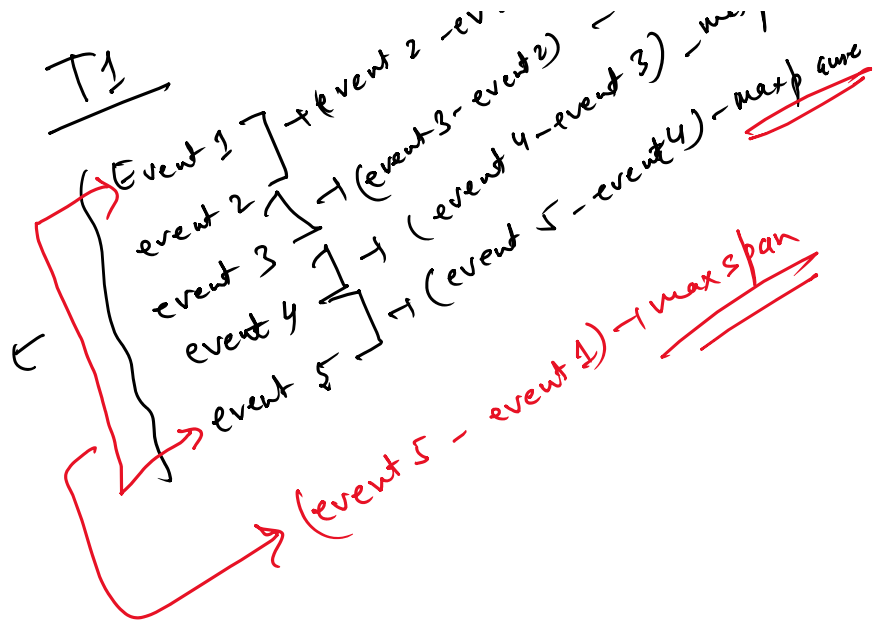 T1
Event 1 → (event 2 - ev
event 2 → (event 3 - event 2) -
event 3 → (event 4 - event 3) -
event 4 → (event 5 - event 4) - maxpause
event 5
(event 5 - event 1) → maxspan